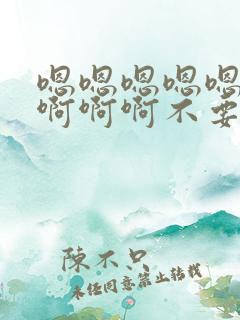 嗯嗯嗯嗯嗯
啊啊啊不要
陳不只
未经同意禁止转载